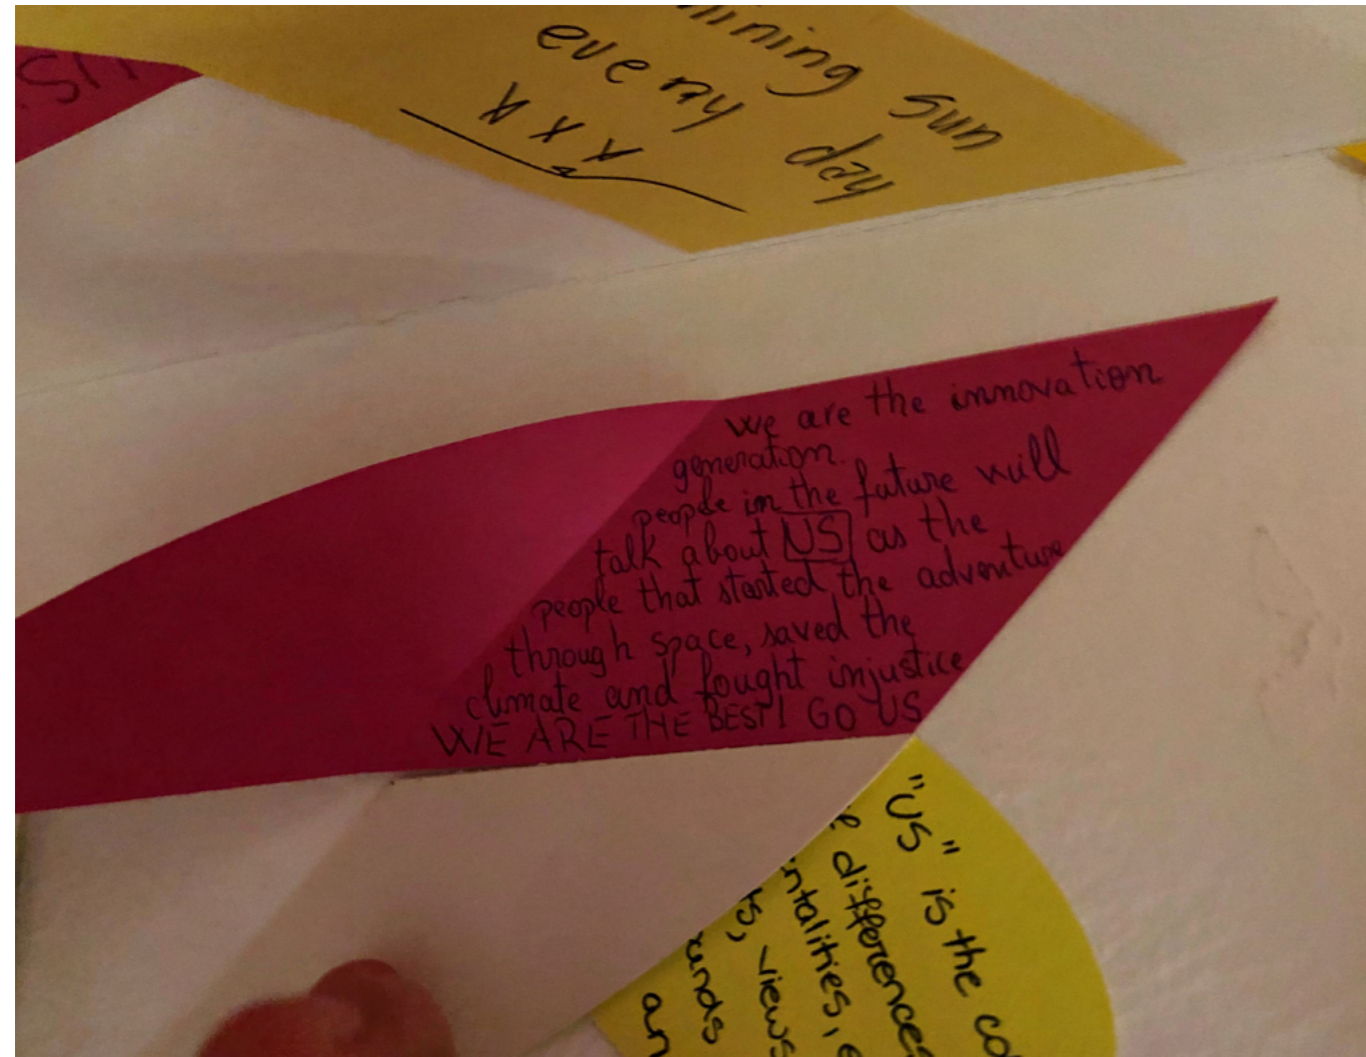 sun
every day
x x x
we are the innovation
generation.
people in the future will
talk about US as the
people that started the adventure
through space, saved the
climate and fought injustice
WE ARE THE BEST! GO US
"US" is the
differences
views